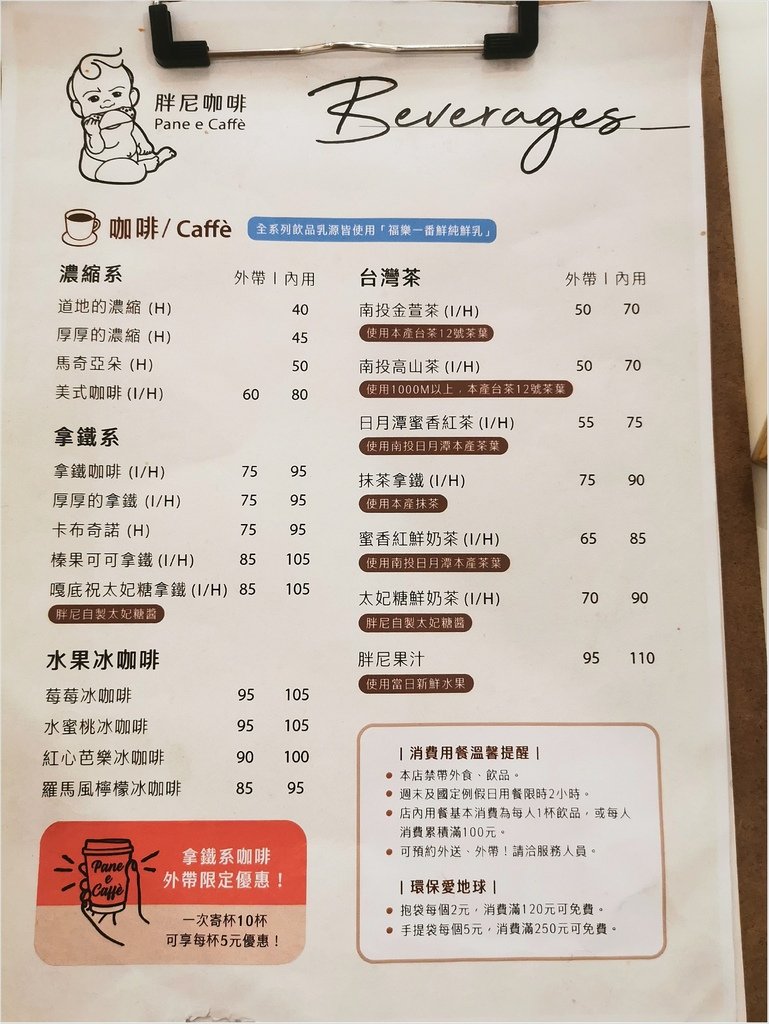 胖尼咖啡
Pane e Caffè
Beverages
咖啡/ Caffè
全系列飲品乳源皆使用「福樂一番鮮純鮮乳」
濃縮系 外帶 | 內用
道地的濃縮 (H) 40
厚厚的濃縮 (H) 45
馬奇亞朵 (H) 50
美式咖啡 (I/H) 60 80
拿鐵系
拿鐵咖啡 (I/H) 75 95
厚厚的拿鐵 (I/H) 75 95
卡布奇諾 (H) 75 95
榛果可可拿鐵 (I/H) 85 105
嘎底祝太妃糖拿鐵 (I/H) 85 105
胖尼自製太妃糖醬
水果冰咖啡
莓莓冰咖啡 95 105
水蜜桃冰咖啡 95 105
紅心芭樂冰咖啡 90 100
羅馬風檸檬冰咖啡 85 95
Pane
e
Caffè
拿鐵系咖啡
外帶限定優惠！
一次寄杯10杯
可享每杯5元優惠！
台灣茶 外帶 | 內用
南投金萱茶 (I/H) 50 70
使用本產台茶12號茶葉
南投高山茶 (I/H) 50 70
使用1000M以上，本產台茶12號茶葉
日月潭蜜香紅茶 (I/H) 55 75
使用南投日月潭本產茶葉
抹茶拿鐵 (I/H) 75 90
使用本產抹茶
蜜香紅鮮奶茶 (I/H) 65 85
使用南投日月潭本產茶葉
太妃糖鮮奶茶 (I/H) 70 90
胖尼自製太妃糖醬
胖尼果汁 95 110
使用當日新鮮水果
| 消費用餐溫馨提醒 |
● 本店禁帶外食、飲品。
● 週末及國定例假日用餐限時2小時。
● 店內用餐基本消費為每人1杯飲品，或每人
消費累積滿100元。
● 可預約外送、外帶！請洽服務人員。
| 環保愛地球 |
● 抱袋每個2元，消費滿120元可免費。
● 手提袋每個5元，消費滿250元可免費。